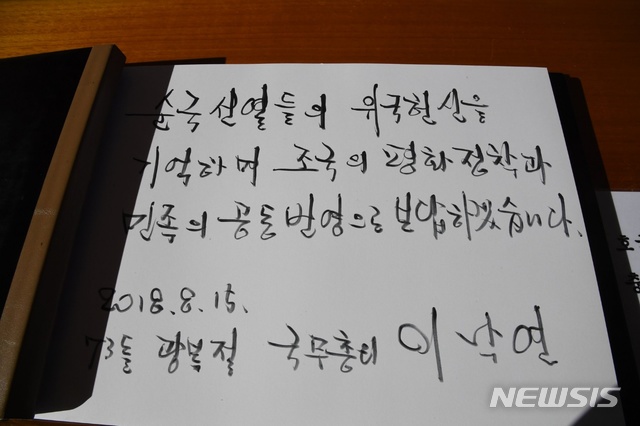 순국선열들의 위국헌신을
기억하며 조국의 평화정착과
민족의 공동번영으로 보답하겠습니다.
2018.8.15.
73돌 광복절 국무총리 이낙연
NEWSIS